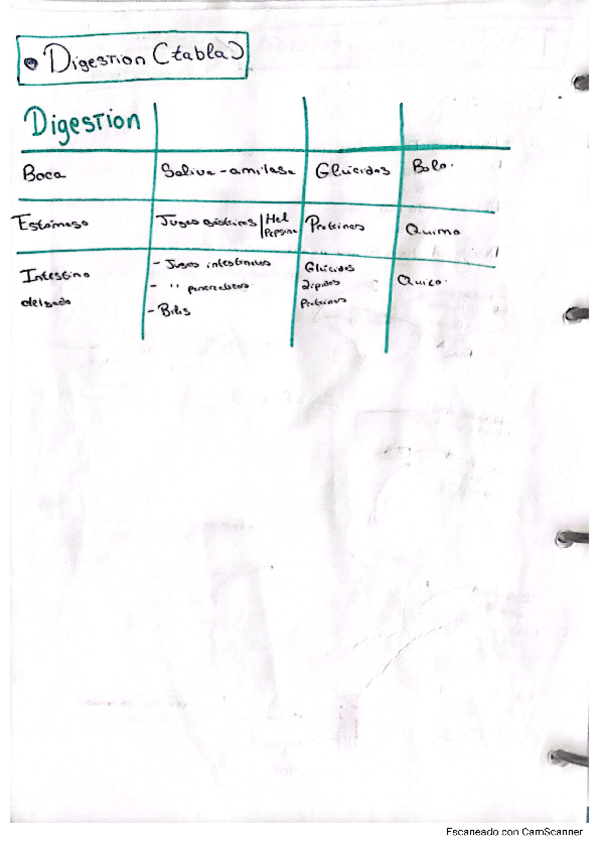 • Digestion (tabla)
Digestion
Boca Saliva-amilasa Glúcidos Bolo.
Estómago Jugos gástricos | Hcl Pepsina Proteinas Quimo
Intestino delgado
- Jugos intestinales
- '' pancreáticos
- Bilis
Glúcidos
Lípidos
Proteinas
Quilo.
Escaneado con CamScanner